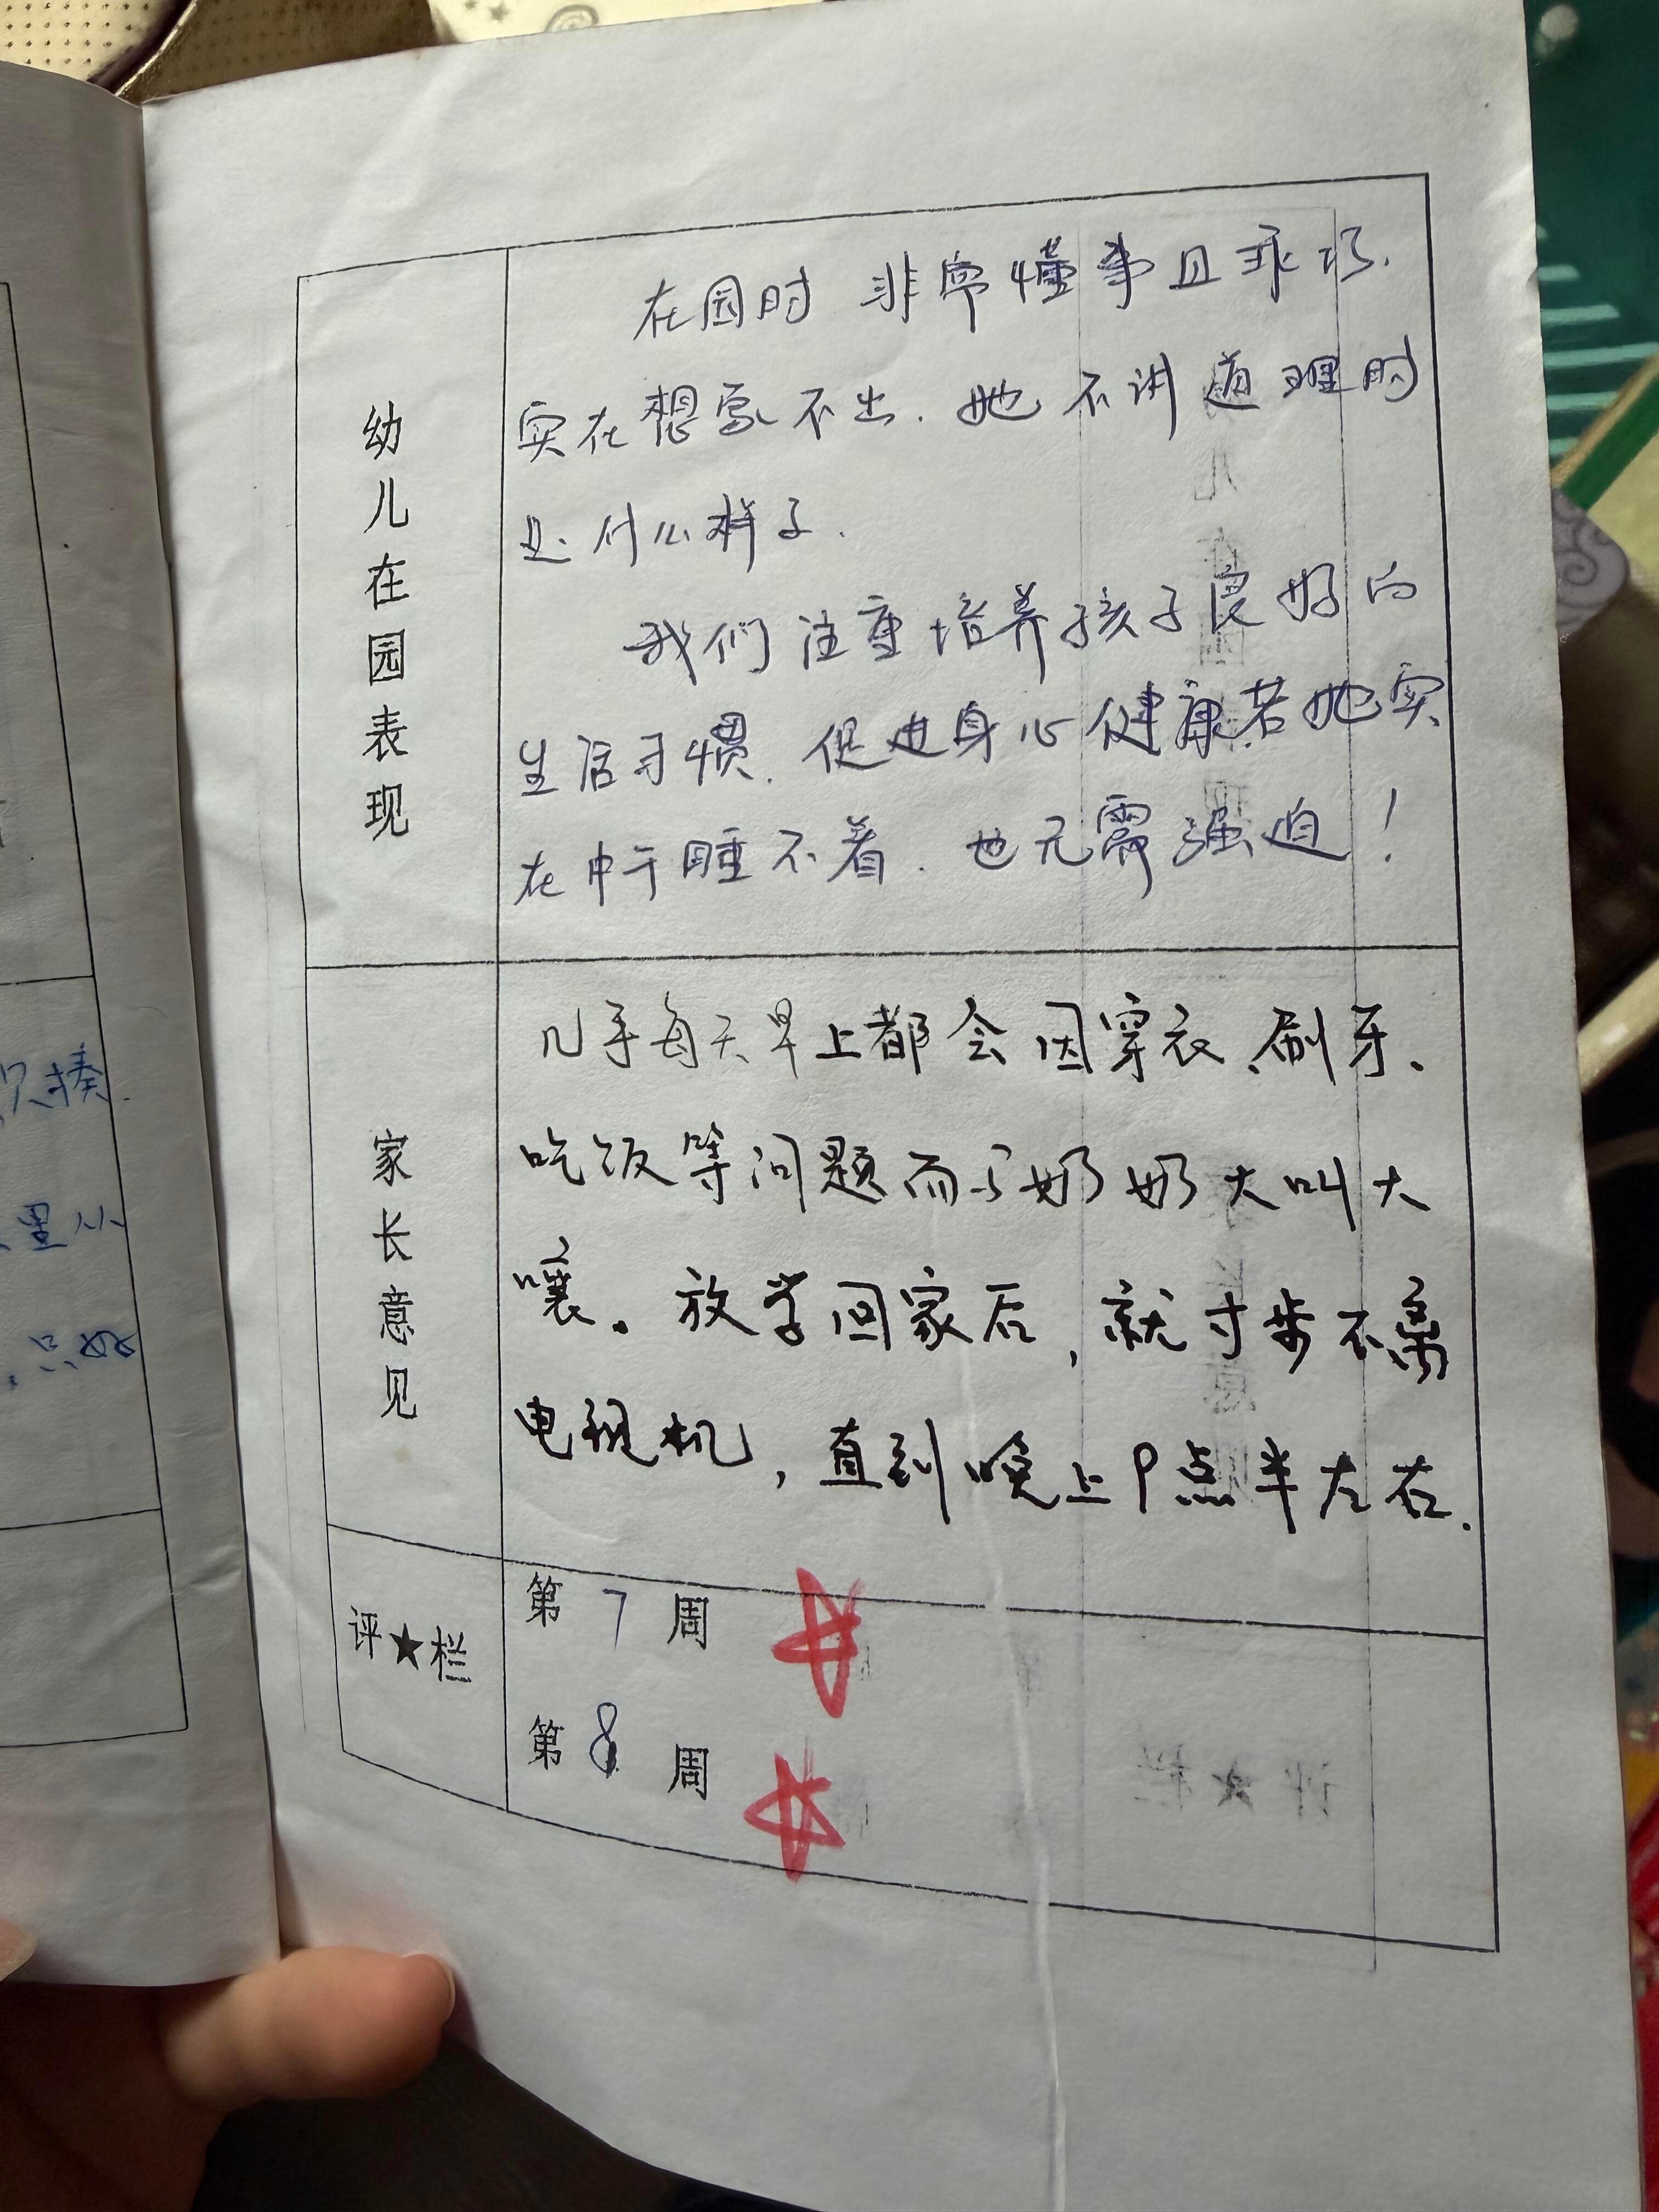 幼儿在园表现
在园时 非常懂事且乖巧.
实在想象不出.她不讲道理时
是什么样子.
我们注重培养孩子良好的
生活习惯.促进身心健康若她实
在中午睡不着.也无需强迫!
家长意见
几乎每天早上都会因穿衣、刷牙、
吃饭等问题而与奶奶大叫大
嚷。放学回家后,就寸步不离
电视机,直到晚上P点半左右.
评★栏
第 7 周
第 8 周